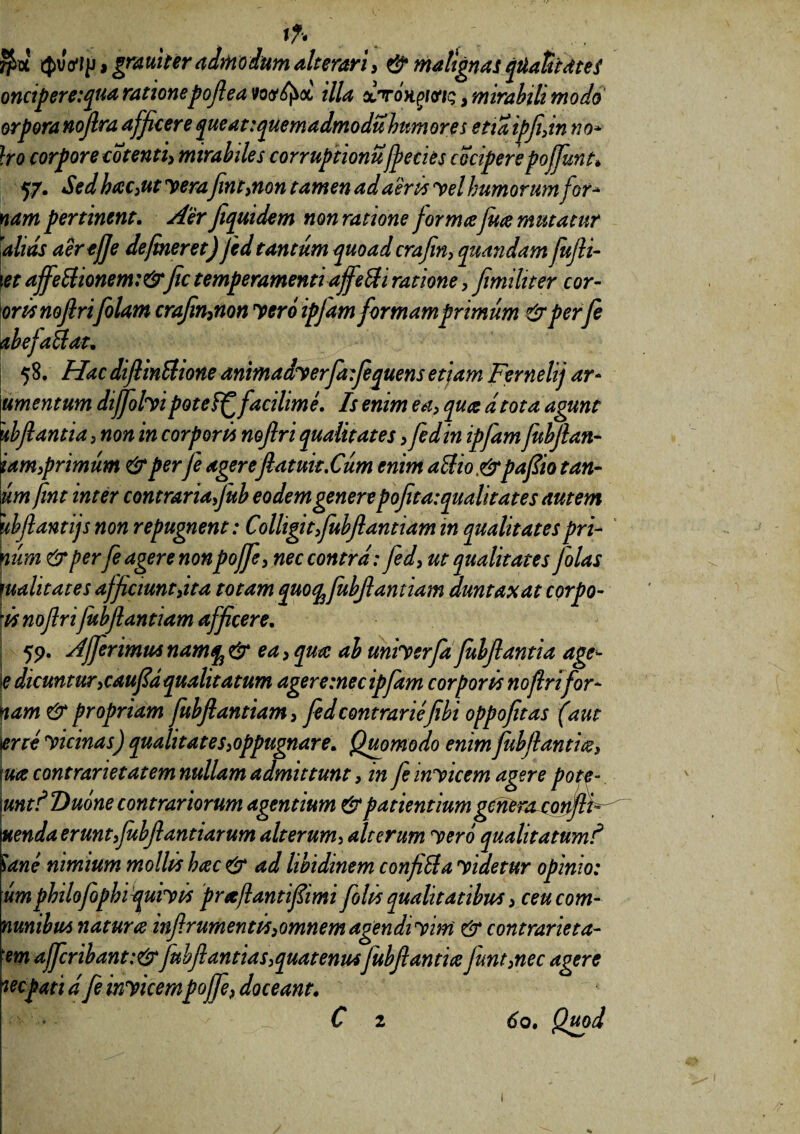 17.
ρὰ φύσιμ, grauiter admodum alterari, & malignas qualitates
oncipere: qua ratione postea νοσερὰ illa ἀπόκρισις, mirabili modo
orpora nostra afficere queat: quemadmodū humores etiā ipsi, in no-
tro corpore cōtenti, mirabiles corruptionū species cōcipere possunt.
57. Sed hæc, ut vera sint, non tamen ad aëris vel humorum for-
nam pertinent. Aër siquidem non ratione formæ suæ mutatur
alias aër esse desineret) sed tantùm quoad crasin, quandam susti-
et affectionem: & sic temperamenti affecti ratione, similiter cor-
oris nostri solam crasin, non verò ipsam formam primùm & per se
abefactat.
58. Hac distinctione animadversa: sequens etiam Fernelij ar-
umentum dissolvi potest facilimè. Is enim ea, quæ à tota agunt
ubstantia, non in corporis nostri qualitates, sed in ipsam substan-
iam, primùm & per se agere statuit. Cùm enim actio & passio tan-
ùm sint inter contraria, sub eodem genere posita: qualitates autem
ubstantijs non repugnent: Colligit, substantiam in qualitates pri-
nùm & per se agere non posse, nec contrà: sed, ut qualitates solas
ualitates afficiunt, ita totam quoq; substantiam duntaxat corpo-
is nostri substantiam afficere.
59. Asserimus namq; & ea, quæ ab universa substantia age-
e dicuntur, caussâ qualitatum agere: nec ipsam corporis nostri for-
nam & propriam substantiam, sed contrariè sibi oppositas (aut
ertè vicinas) qualitates, oppugnare. Quomodo enim substantiæ,
uæ contrarietatem nullam admittunt, in se invicem agere pote-
unt? Duóne contrariorum agentium & patientium genera consti-
uenda erunt, substantiarum alterum, alterum verò qualitatum?
Sanè nimium mollis hæc & ad libidinem conficta videtur opinio:
ùm philosophi quivis præstantißimi solis qualitatibus, ceu com-
nunibus naturæ instrumentis, omnem agendi vim & contrarieta-
em ascribant: & substantias, quatenus substantiæ sunt, nec agere
nec pati à se invicem posse, doceant.
C 2 60. Quod